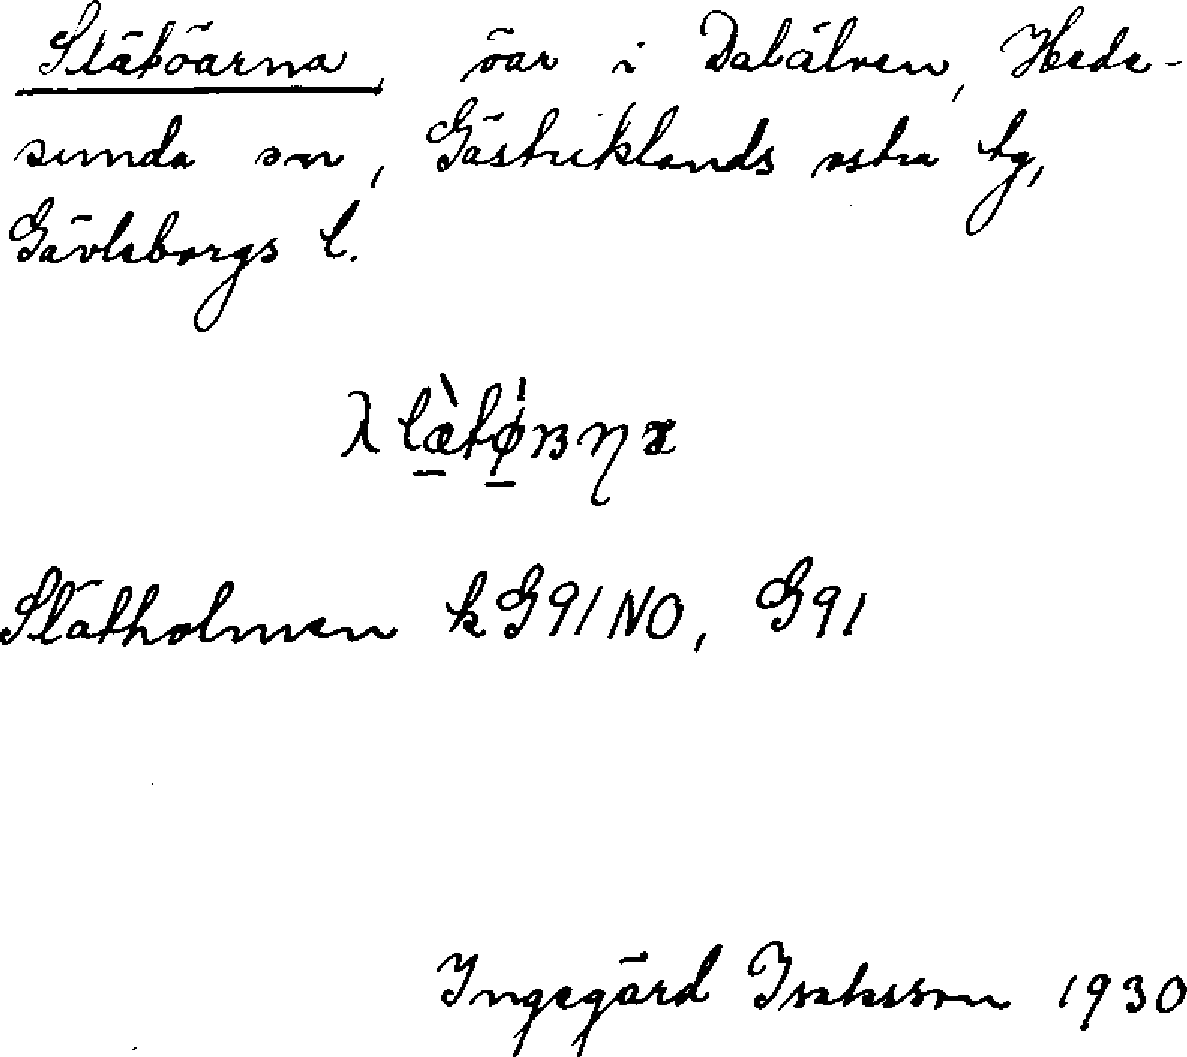 Slätöarna, öar i Dalälven, Hede-
sunda sn, Gästriklands östra tg,
Gävleborgs l.
Slätholmen k G91 NO, G91
Ingegärd Isaksson 1930